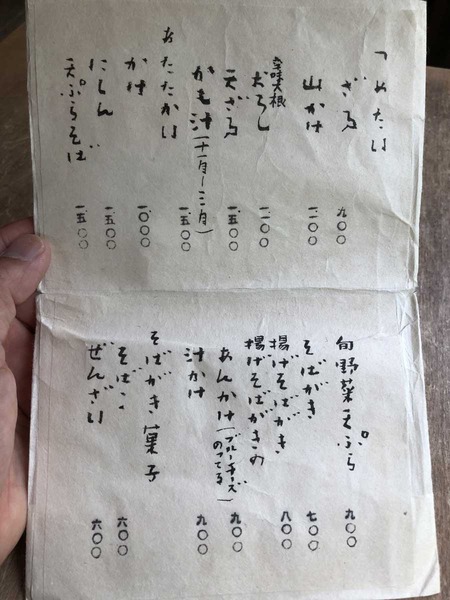 つめたい
ざる 九〇〇
山かけ 一.一〇〇
辛味大根
おろし 一.一〇〇
天ざる 一.五〇〇
かも汁(十一月〜三月) 一.五〇〇
あたたかい
かけ 一.〇〇〇
にしん 一.五〇〇
天ぷらそば 一.五〇〇
旬野菜天ぷら 九〇〇
そばがき 七〇〇
揚げそばがき 八〇〇
揚げそばがきの
あんかけ(ブルーチーズのってる) 九〇〇
汁かけ 九〇〇
そばがき菓子
そばこ 六〇〇
ぜんざい 六〇〇